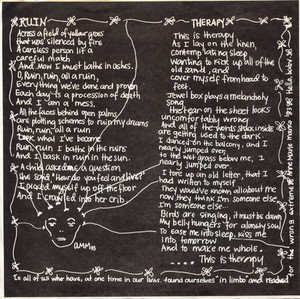 RUIN
Across a field of yellow grass
that was silenced by fire
A careless person lit a
careful match
And now I must bathe in ashes.
O, Ruin, ruin, all a ruin,
Everything we've done and proven
Each day is a procession of death
And I am a mess.
All the faces behind open palms
are plotting schemes to ruin my dreams
Ruin, ruin, all a ruin
Look what I've become
Ruin, ruin, I bathe in the ruins
And I bask in ruin in the sun.
A child asked me a question
she said do you feel and live
I picked myself up off the floor
And I crawled into her crib
THERAPY
This is therapy
As I lay on the linen,
contemplating sleep
Wanting to kick up all of the
old sand, and
cover myself from head to
feet.
Jewel box plays a melancholy
song
The tear on the sheet looks
uncomfortably wrong
And all of the words
are getting used to the dark.
I danced on the balcony, and I
nearly jumped over
to the wet grass below me, I
nearly jumped over.
I tore up an old letter, that I
had written to myself
They would've known all about me
now they think I'm someone else
I'm someone else...
Birds are singing, it must be dawn
My belly hungers for a lonely soul
To ease me into sleep, kiss me
into tomorrow
And to make me whole.
.... This is therapy
To all of us who have, at one time in our lives, found ourselves in limbo and reached
for the wrong